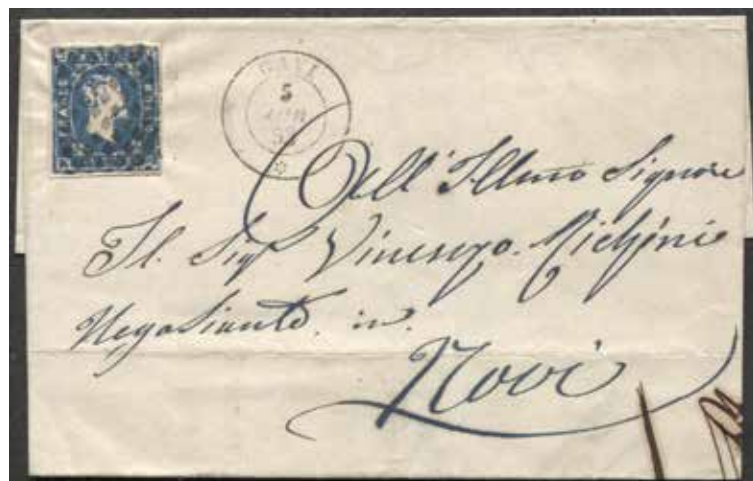 GAVI
5
All' Illmo Signore
Il Sigr Vincenzo Michini
Negosiante in
Novi